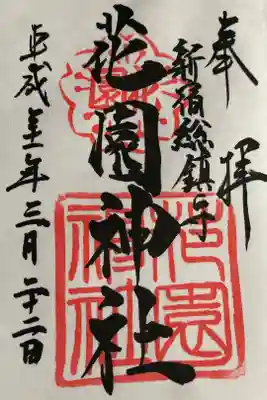 奉拝
新宿総鎮守
花園神社
平成三十一年三月二十二日
花園神社